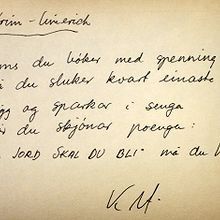 rim - limerick
du bøker med spenning
du sluker kvart einaste
og sparkar i senga
du skjönar poenga:
JORD SKAL DU BLI" må du